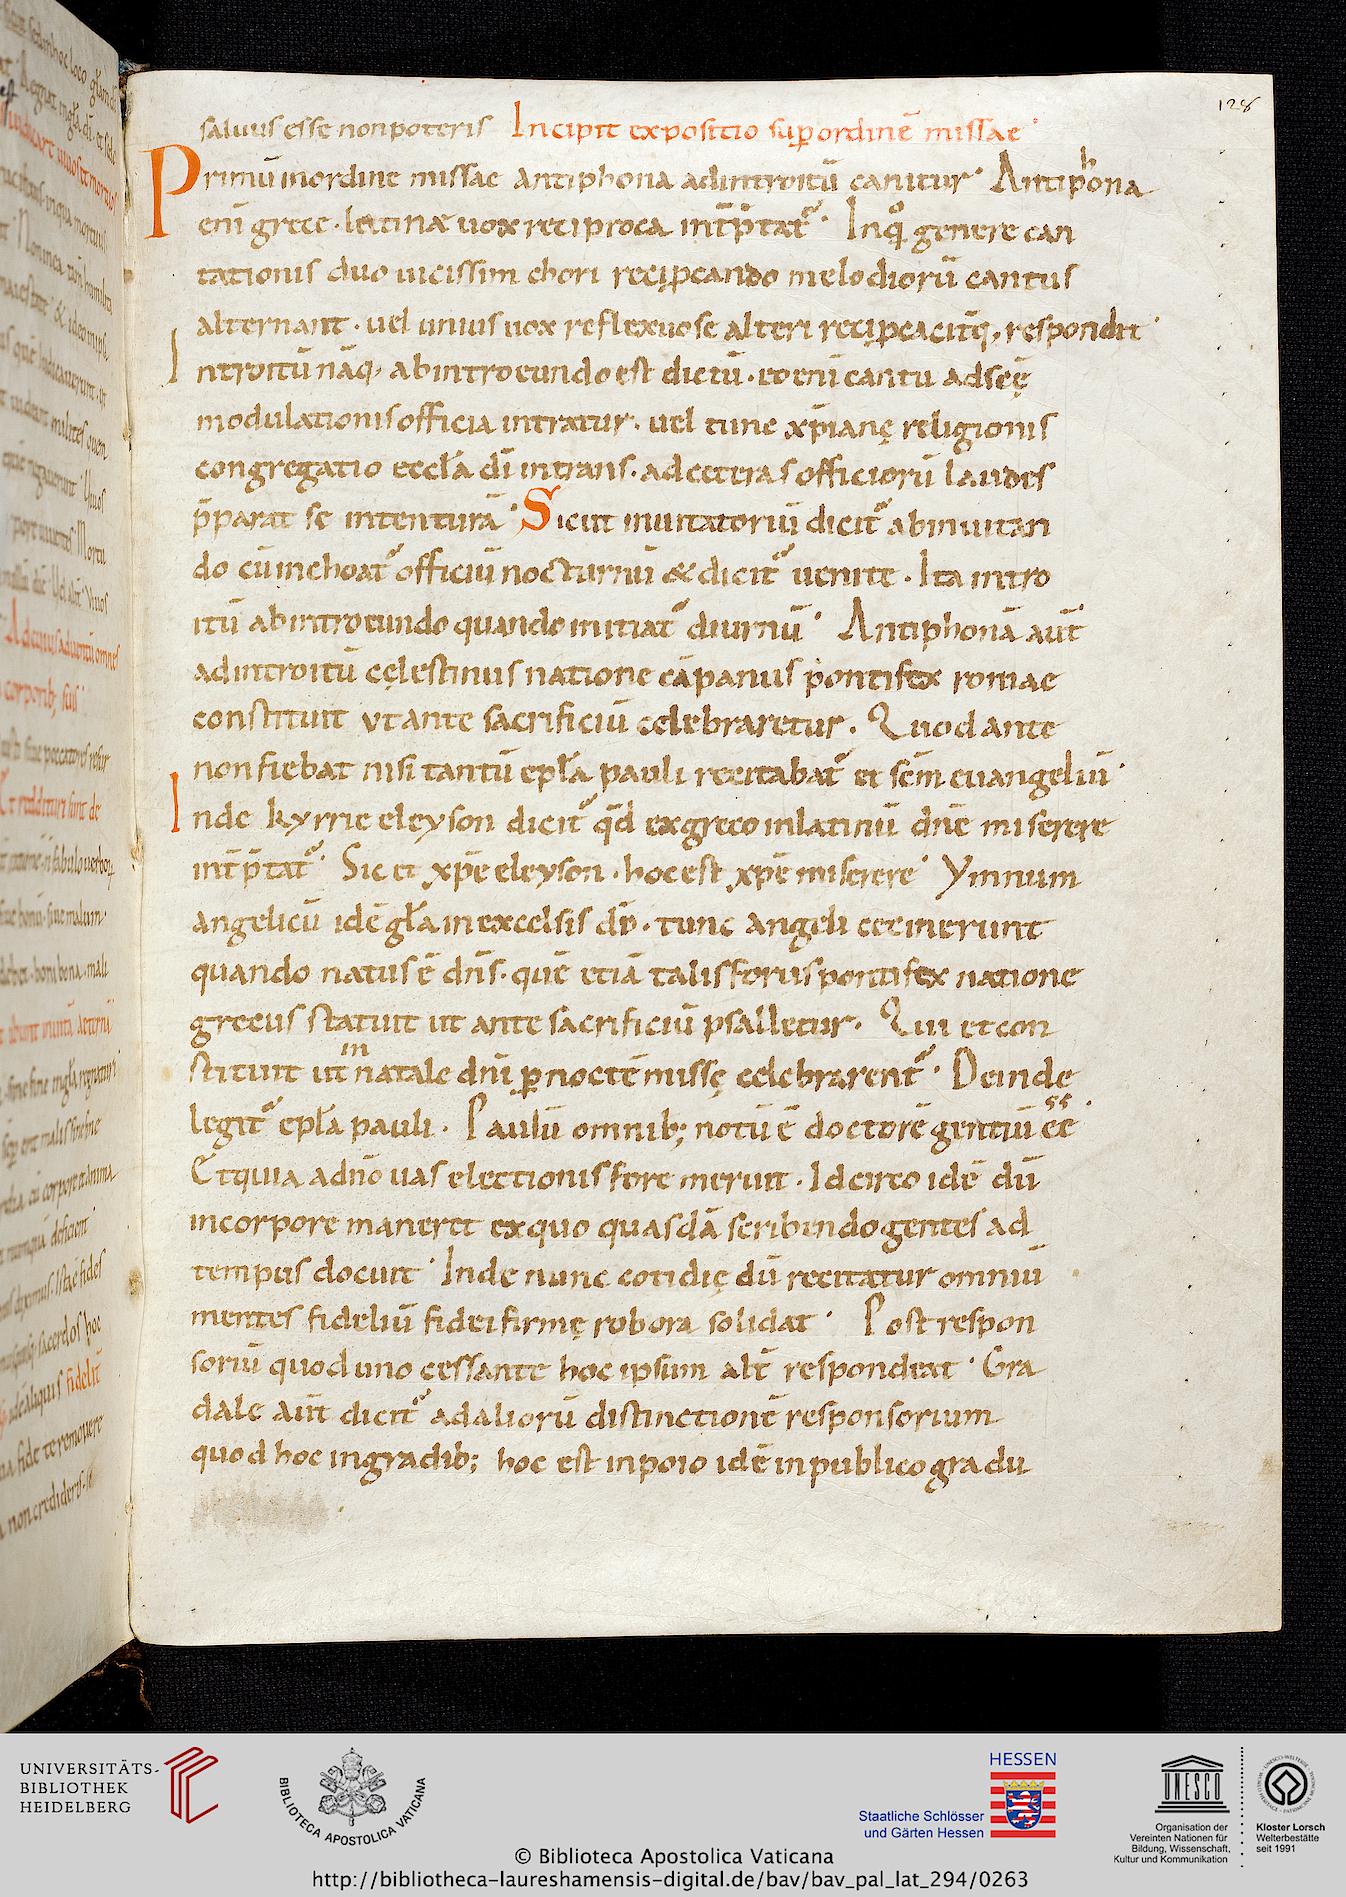 128
saluus esse non poteris Incipit expositio sup ordinē missae
Primū inordine missae antiphona adintroitū canitur · Antiphona
enī grece · latinæ uox reciproca int̄p̄tat᷑ · Inq̊ genere can
tationis duo uicissim chori reciꝓcando melodiorū cantus
alternant · uel unius uox reflexuose alteri reciꝓca citq; respondit
Introitū nāq; abintroeundo est dictū · eo enī cantu ad seę
modulationis officia intratur · uel tunc xp̄ianę religionis
congregatio eccła dī intrans · ad ceteras officiorū laudes
p̄parat se intenturā · Sicut inuitatoriū dicit᷑ abinuitan
do cū inchoat᷑ officiū nocturnū & dicit᷑ uenite · Ita intro
itū abintroeundo quando initiat᷑ diurnū · Antiphonā aūt
adintroitū cęlestinus natione cāpanus pontifex romae
constituit vt ante sacrificiū celebraretur · Quod ante
non fiebat nisi tantū epła pauli recitabat᷑ et sc̄m euangeliū ·
Inde kyrrie eleyson dicit᷑ qđ exgreco inlatinū dn̄e miserere
int̄p̄tat᷑ · Sic et xp̄e eleyson · hoc est xp̄e miserere · Ymnum
angelicū idē gła in excelsis dō · tunc angeli cecinerunt
quando natus ē dn̄s · quē etiā talisforus pontifex natione
grecus statuit ut ante sacrificiū psalletur · Qui et con
stituit ut in natale dn̄i ꝑ noctē missę celebrarent᷑ · Deinde
legit᷑ epła pauli · Paulū omnib; notū ē doctorē gentiū eē ss
Et quia adn̄o uas electionis fore meruit · Idcirco idē dū
incorpore maneret exquo quasdā scribendo gentes ad
tempus docuit · Inde nunc cotidię dū recitatur omniū
mentes fideliū fidei firmę robora solidat · Post respon
soriū quod uno cessante hoc ipsum alt̄ respondeat · Gra
dale aūt dicit᷑ ad aliorū distinctionē responsorium
quod hoc ingradib; hoc est inpoio idē inpublico gradu
UNIVERSITÄTS-
BIBLIOTHEK
HEIDELBERG
BIBLIOTECA APOSTOLICA VATICANA
HESSEN
Staatliche Schlösser
und Gärten Hessen
UNESCO
Organisation der
Vereinten Nationen für
Bildung, Wissenschaft,
Kultur und Kommunikation
Kloster Lorsch
Welterbestätte
seit 1991
© Biblioteca Apostolica Vaticana
http://bibliotheca-laureshamensis-digital.de/bav/bav_pal_lat_294/0263